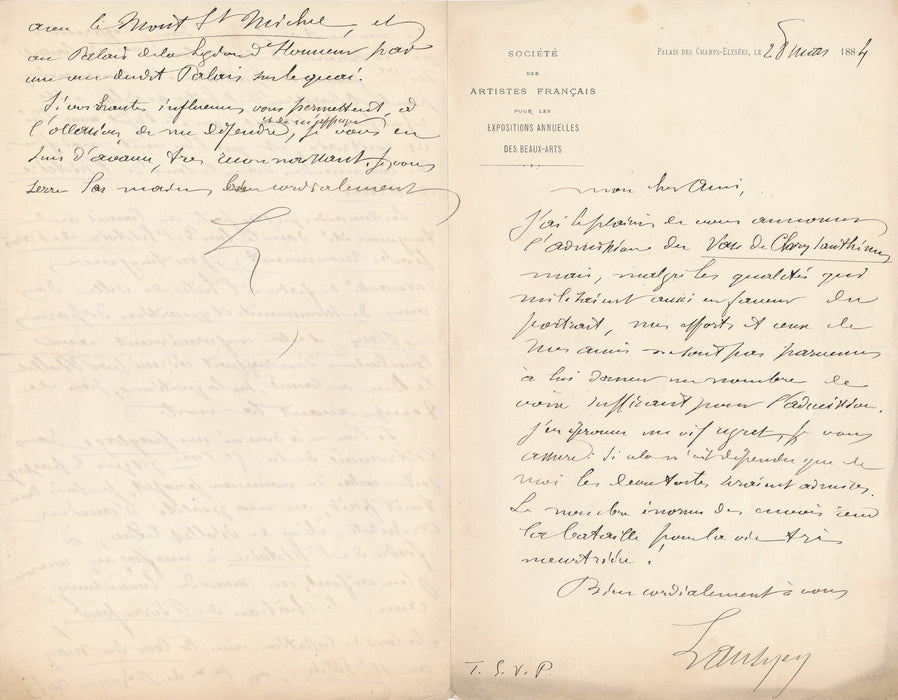 SOCIÉTÉ
DES
ARTISTES FRANÇAIS
POUR LES
EXPOSITIONS ANNUELLES
DES BEAUX-ARTS
PALAIS DES CHAMPS-ELYSÉES, LE 28 mars 1884
mon cher Ami,
J'ai le plaisir de vous annoncer
l'admission du Vase de Chrysanthèmes
mais, malgré les qualités qui
militaient aussi en faveur du
portrait, mes efforts et ceux de
mes amis ne sont pas parvenus
à lui donner un nombre de
voix suffisant pour l'admission.
J'en éprouve un vif regret, je vous
assure. Si cela n'eût dépendu que de
moi les deux toiles seraient admises.
Le nombre énorme des envois rend
la bataille pour la vie très
meurtrière !
Bien cordialement à vous
Lansyer
T. S. V. P.
avec le Mont St Michel, et
au Palais de la Légion d'Honneur par
une vue dudit Palais sur le quai.
Si vos hautes influences vous permettent, à
l'occasion, de me défendre, et de m'appuyer je vous en
suis d'avance, très reconnaissant. Je vous
serre les mains bien cordialement
L